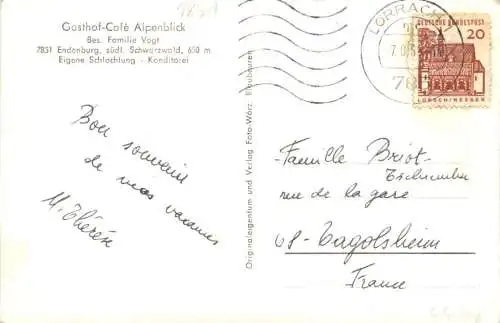 Gasthof-Café Alpenblick
Bes. Familie Vogt
7851 Endenburg, südl. Schwarzwald, 650 m
Eigene Schlachtung - Konditorei
Bon souvenir
de nos vacances
M. Thérèse
Originaleigentum und Verlag Foto-Wörz, Blaubeuren
LÖRRACH
DEUTSCHE BUNDESPOST
20
LORSCH/HESSEN
Famille Briot-
rue de la gare
68-Tagolsheim
France